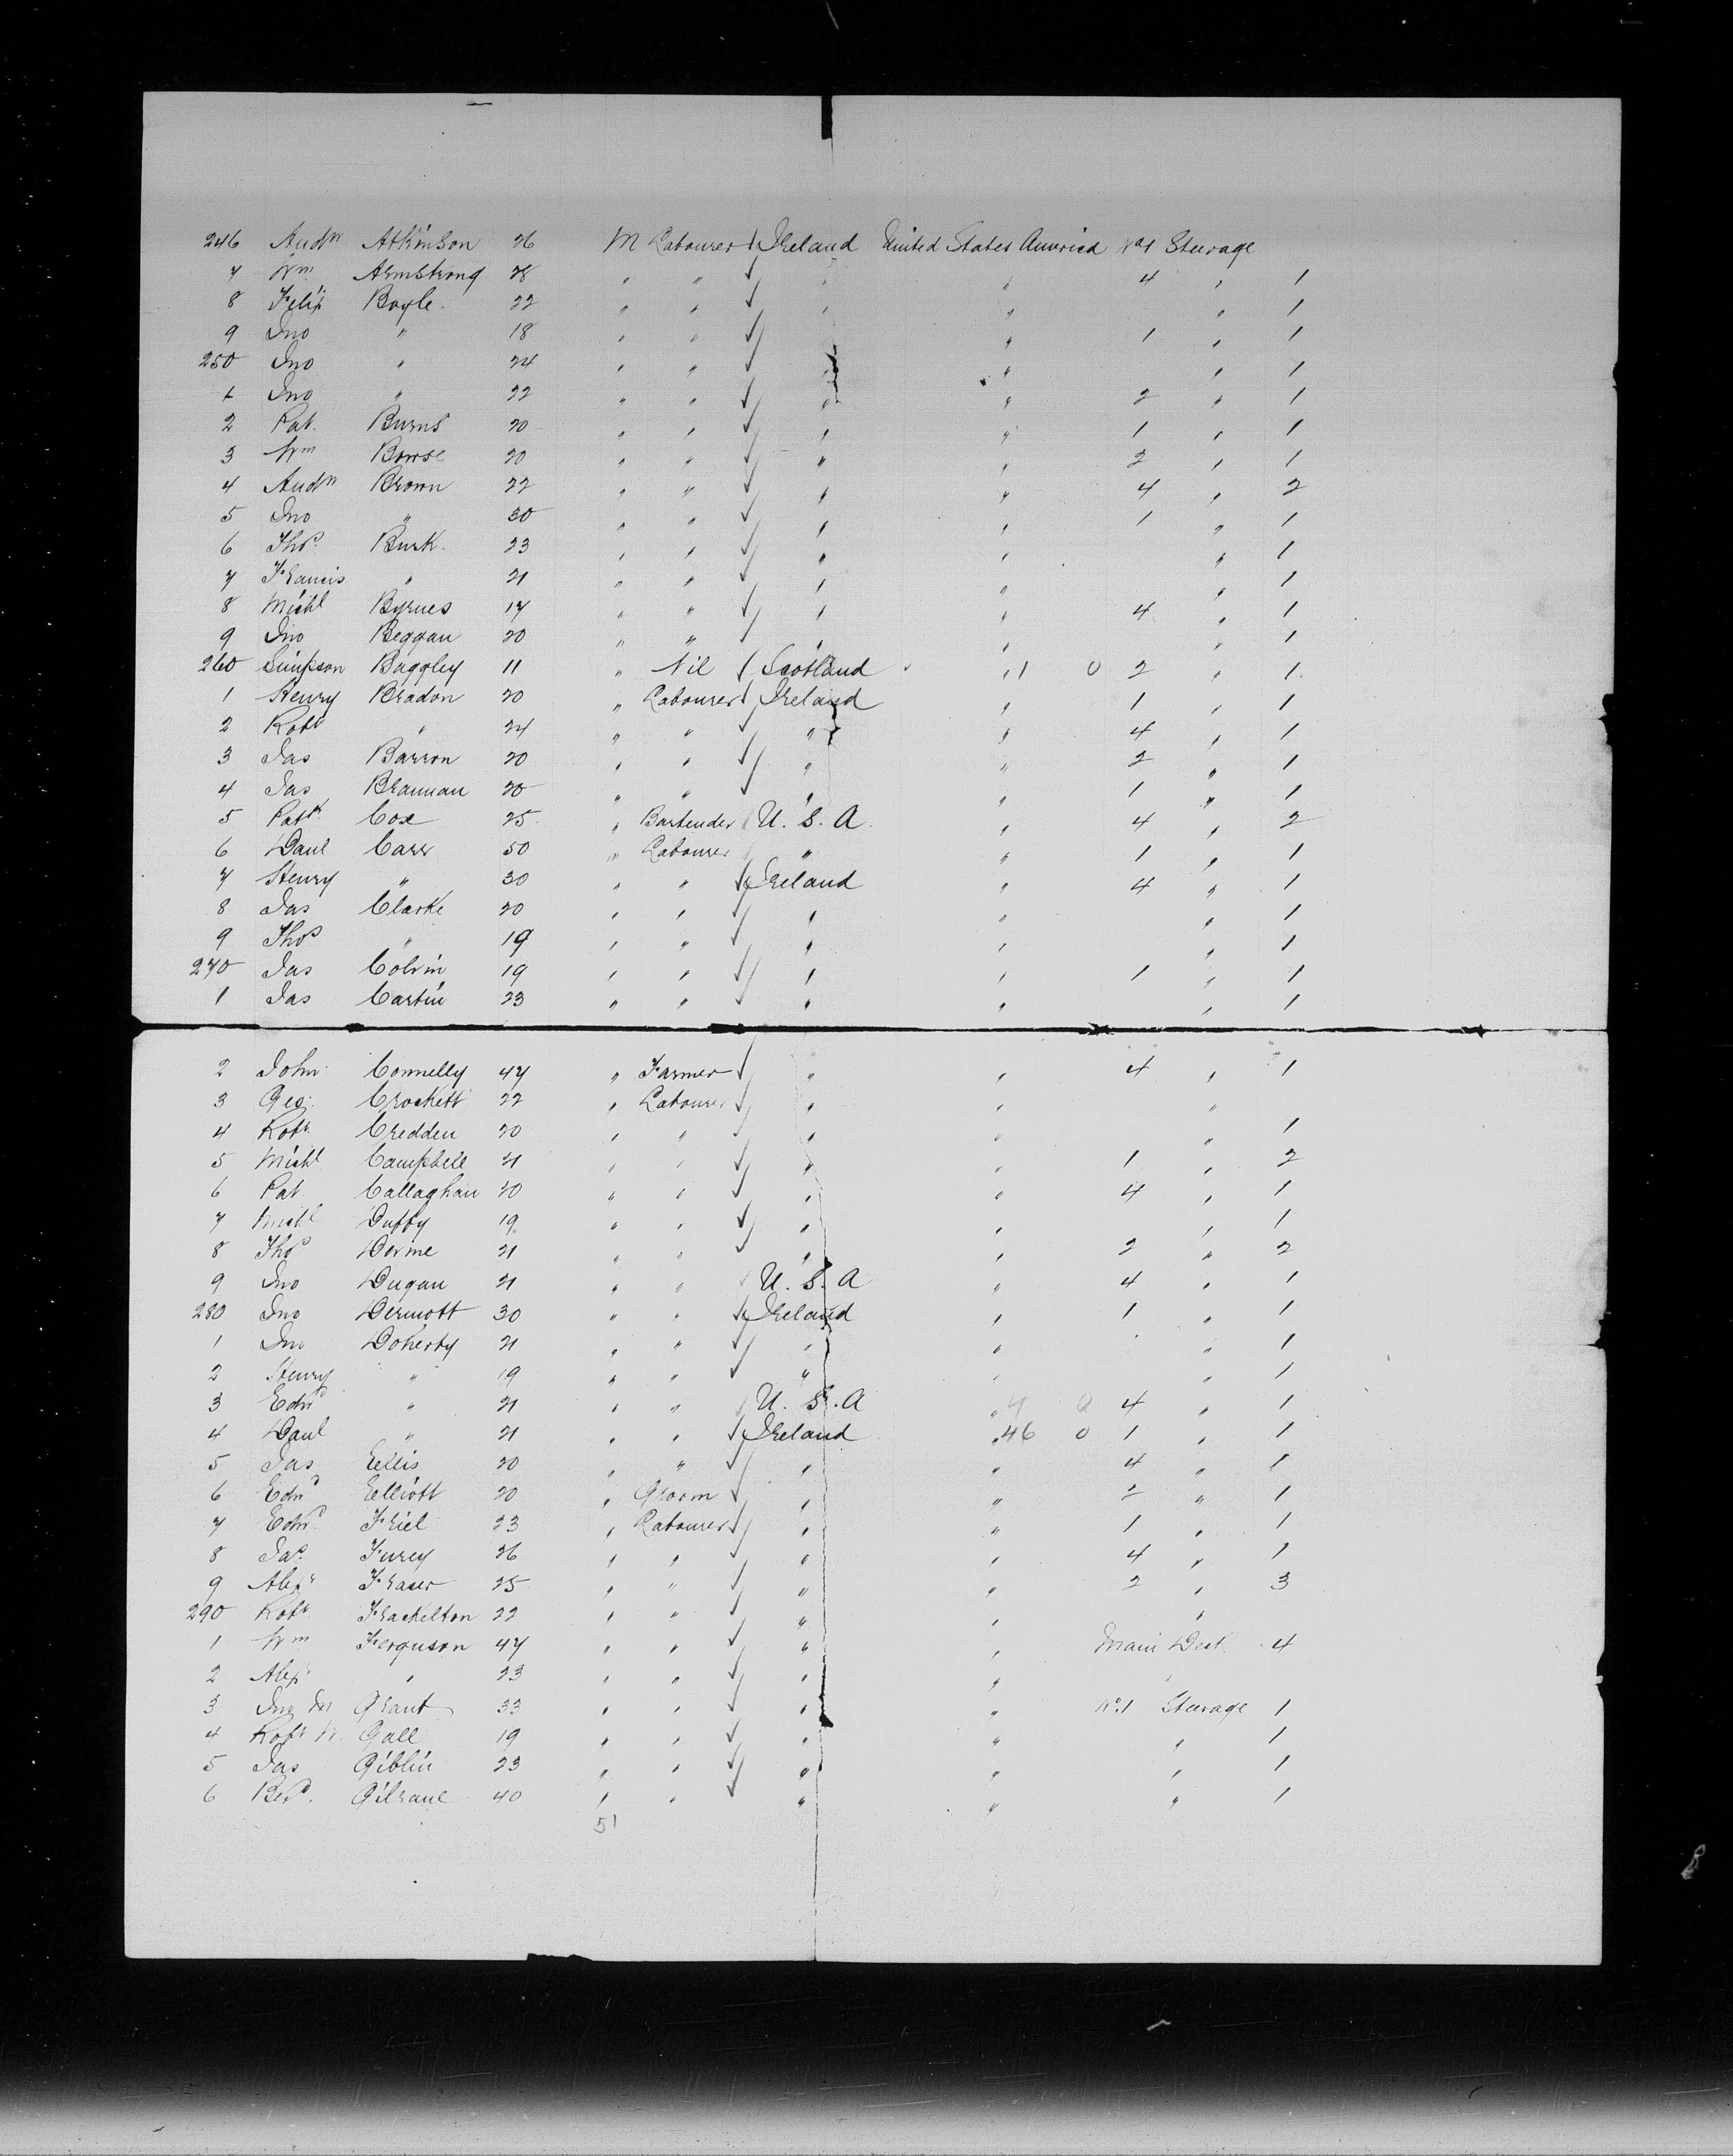 246 Andw Atkinson 26 M Labourer Ireland United States America No 1 Steerage
7 Wm Armstrong 28 " " " " 4 " 1
8 Felix Boyle 22 " " " " " 1
9 Jno " 18 " " " " 1 " 1
250 Jno " 24 " " " " " 1
1 Jno " 22 " " " " 2 " 1
2 Pat. Burns 20 " " " " 1 " 1
3 Wm Bowse 20 " " " " 2 " 1
4 Andw Brown 22 " " " " 4 " 2
5 Jno " 30 " " " " 1 " 1
6 Thos Burk 23 " " " " " 1
7 Francis " 21 " " " " " 1
8 Michl Byrnes 17 " " " " 4 " 1
9 Jno Beggan 20 " " " " " 1
260 Simpson Baggley 11 " Nil Scotland " 1 0 2 " 1
1 Henry Bradon 20 " Labourer Ireland " 1 " 1
2 Robt " 24 " " " " 4 " 1
3 Jas Barron 20 " " " " 2 " 1
4 Jas Brannan 20 " " " " 1 " 1
5 Patk Cox 25 " Bartender U. S. A. " 4 " 2
6 Danl Carr 50 " Labourer " " 1 " 1
7 Henry " 30 " " Ireland " 4 " 1
8 Jas Clarke 20 " " " " " 1
9 Thos " 19 " " " " " 1
270 Jas Colvin 19 " " " " 1 " 1
1 Jas Cartin 23 " " " " " 1
2 John Connelly 47 " Farmer " " 4 " 1
3 Geo. Crockett 22 " Labourer " " "
4 Robt Credden 20 " " " " " 1
5 Michl Campbell 21 " " " " 1 " 2
6 Pat Callaghan 20 " " " " 4 " 1
7 Michl Duffy 19 " " " " " 1
8 Thos Devine 21 " " " " 2 " 2
9 Jno Dugan 21 " " U. S. A " 4 " 1
280 Jno Dermott 30 " " Ireland " 1 " 1
1 Jno Doherty 21 " " " " " 1
2 Henry " 19 " " " " " 1
3 Edwd " 21 " " U. S. A " 4 0 4 " 1
4 Danl " 21 " " Ireland " 46 0 1 " 1
5 Jas Ellis 20 " " " " 4 " 1
6 Edwd Elliott 20 " Groom " " 2 " 1
7 Edwd Friel 23 " Labourer " " 1 " 1
8 Jas Furey 26 " " " " 4 " 1
9 Alexr Fraser 25 " " " " 2 " 3
290 Robt Frackelton 22 " " " " "
1 Wm Ferguson 47 " " " " Main Deck 4
2 Alexr " 23 " " " "
3 Jno M Grant 33 " " " " No. 1 Steerage 1
4 Robt W. Gall 19 " " " " " 1
5 Jas Giblin 23 " " " " " 1
6 Bend. Gilrane 40 " " " " " 1
51